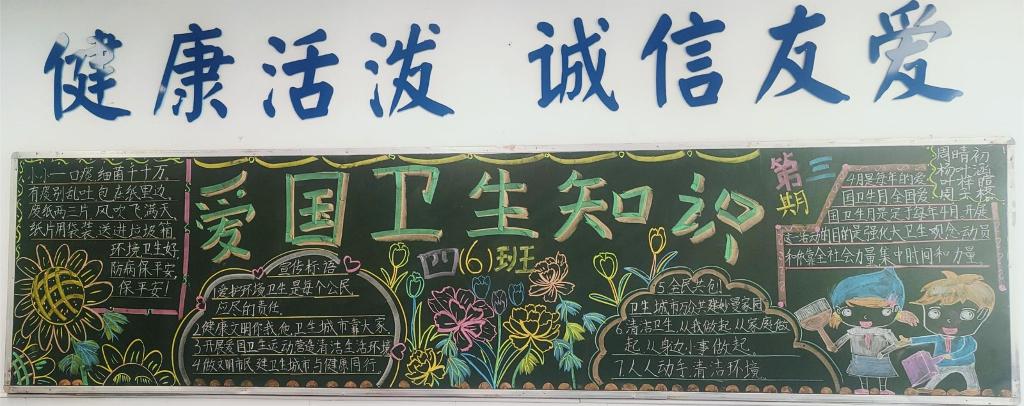 健康活泼 诚信友爱
小小一口痰细菌千千万。
有痰别乱吐包在纸里边。
废纸两三片风吹飞满天
纸片用袋装送进垃圾箱
环境卫生好,
防病保平安,
保平安!
爱国卫生知识
四(6)班
宣传标语
1爱护环境卫生是每个公民
应尽的责任.
2健康文明你我他卫生城市靠大家
3开展爱国卫生运动营造清洁生活环境
4做文明市民建卫生城市与健康同行.
5全民共创
卫生城市分共建好家园
6清洁卫生从我做起从家庭做
起从身边小事做起。
7人人动手清洁环境
第三
期
4月是每年的爱
国卫生月全国爱
国卫生月是定于每年4月开展
这一活动的目的是强化大卫生观念动员
和依靠全社会力量集中时间和力量
周晴初
杨叶涵
叶梓
周